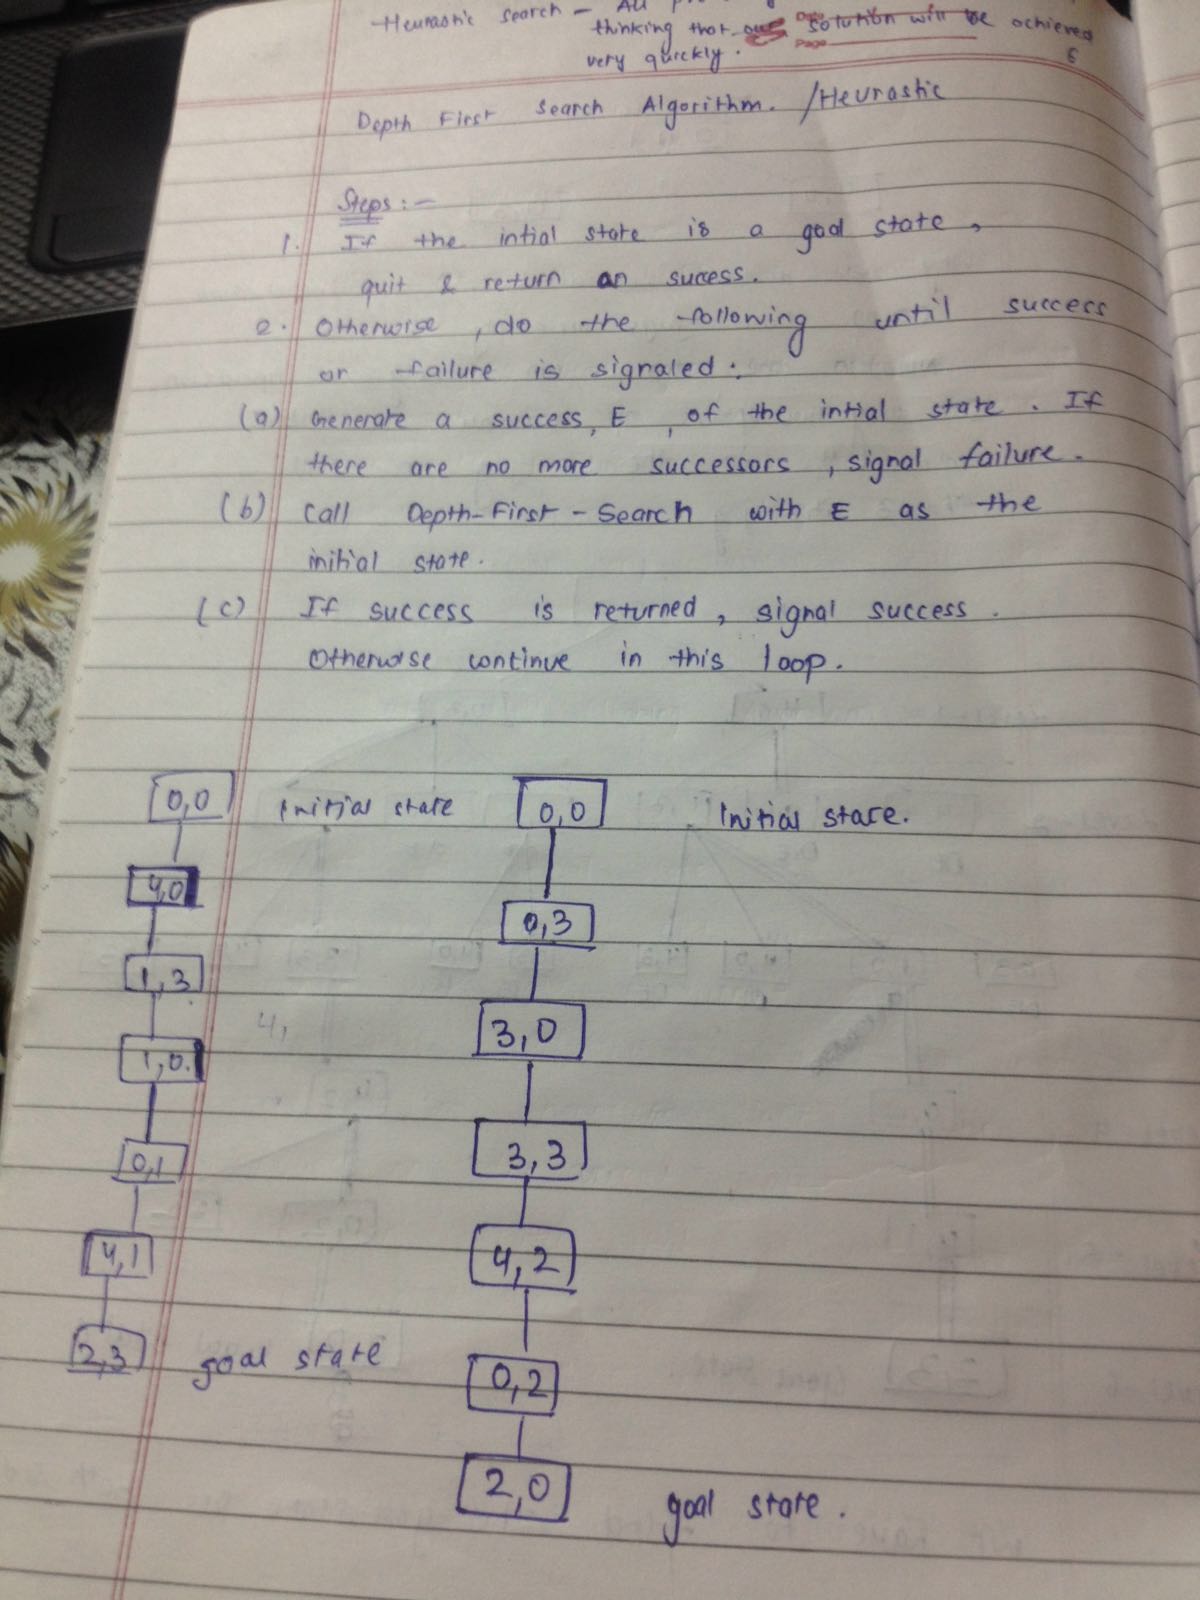 Heurastic search - All
thinking that our solution will be achieved
Page
very quickly.
6
Depth First Search Algorithm. /Heurastic
Steps :-
1. If the intial state is a goal state,
quit & return an sucess.
2. Otherwise, do the following until success
or failure is signaled :
(a) Generate a success, E, of the intial state. If
there are no more successors, signal failure.
(b) Call Depth-First-Search with E as the
initial state.
(c) If success is returned, signal success.
Otherwise continue in this loop.
0,0 Initial state
4,0
1,3
4,
1,0.
0,1
4,1
2,3 goal state
0,0 Initial state.
0,3
3,0
3,3
4,2
0,2
2,0 goal state.